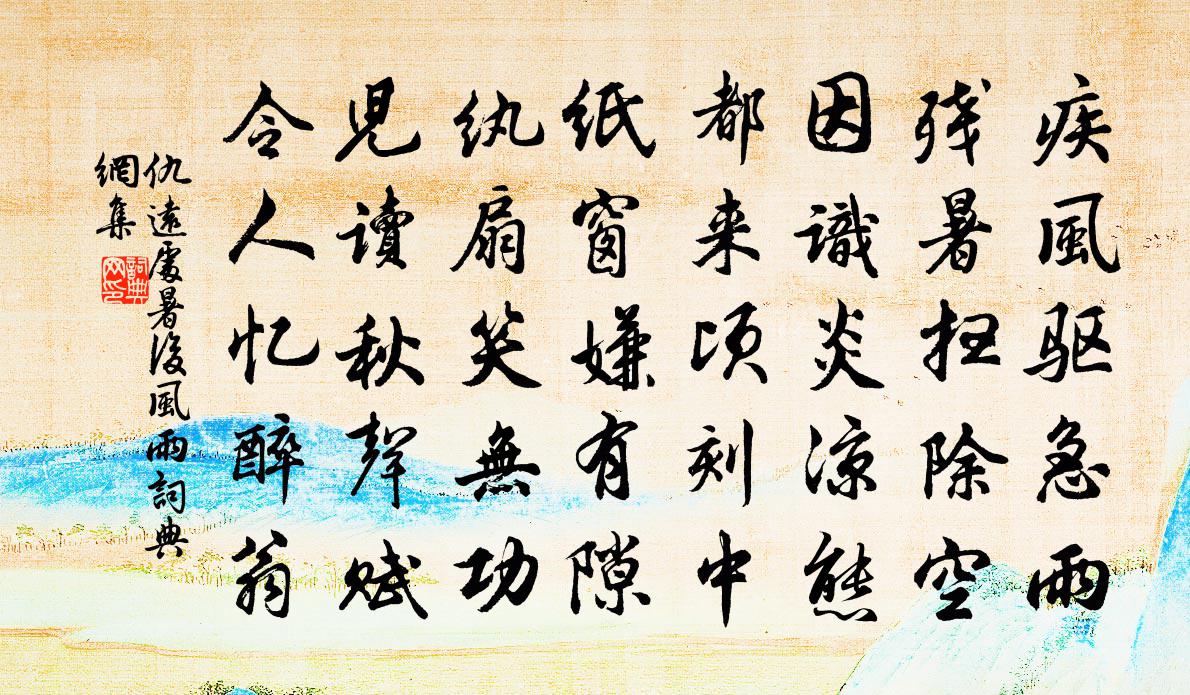 疾風驱急雨
残暑扫除空
因識炎凉態
都来頃刻中
紙窗嫌有隙
纨扇笑無功
児讀秋聲赋
令人忆醉翁
仇遠處暑後風雨詞典
網集
詞典
网印